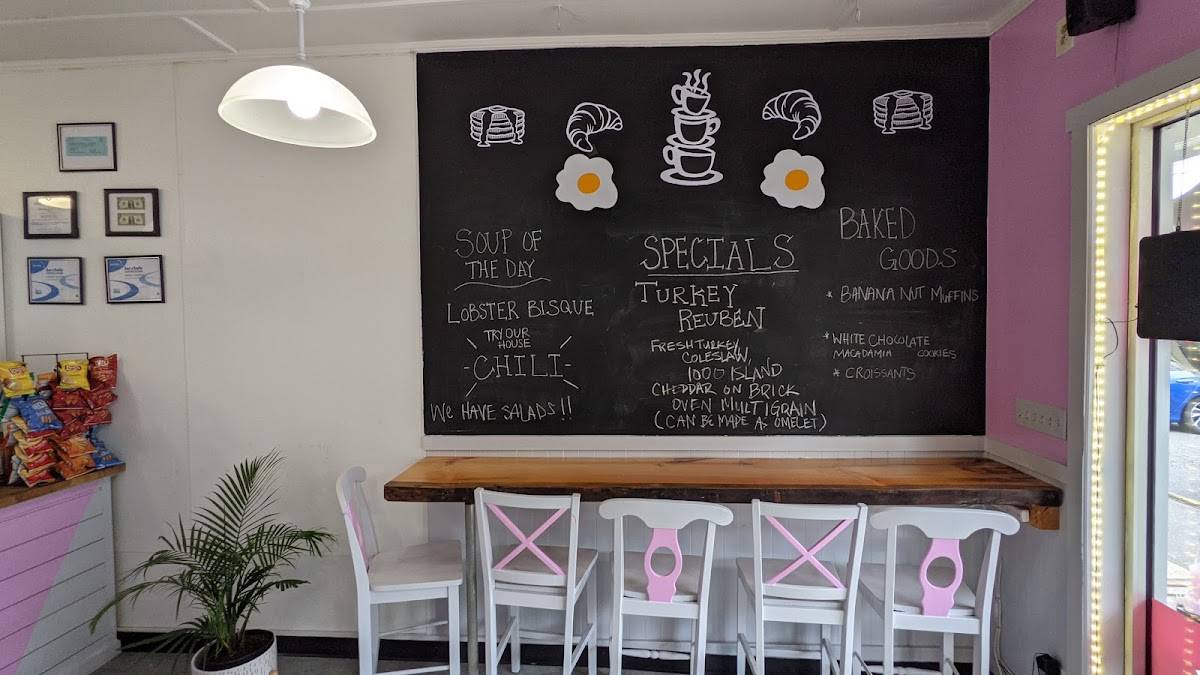 SOUP OF
THE DAY
LOBSTER BISQUE
TRY OUR
HOUSE
CHILI
WE HAVE SALADS!!
SPECIALS
TURKEY
REUBEN
FRESH TURKEY,
COLESLAW,
1000 ISLAND
CHEDDAR ON BRICK
OVEN MULTIGRAIN
(CAN BE MADE AS OMELET)
BAKED
GOODS
* BANANA NUT MUFFINS
* WHITE CHOCOLATE
MACADAMIA COOKIES
* CROISSANTS